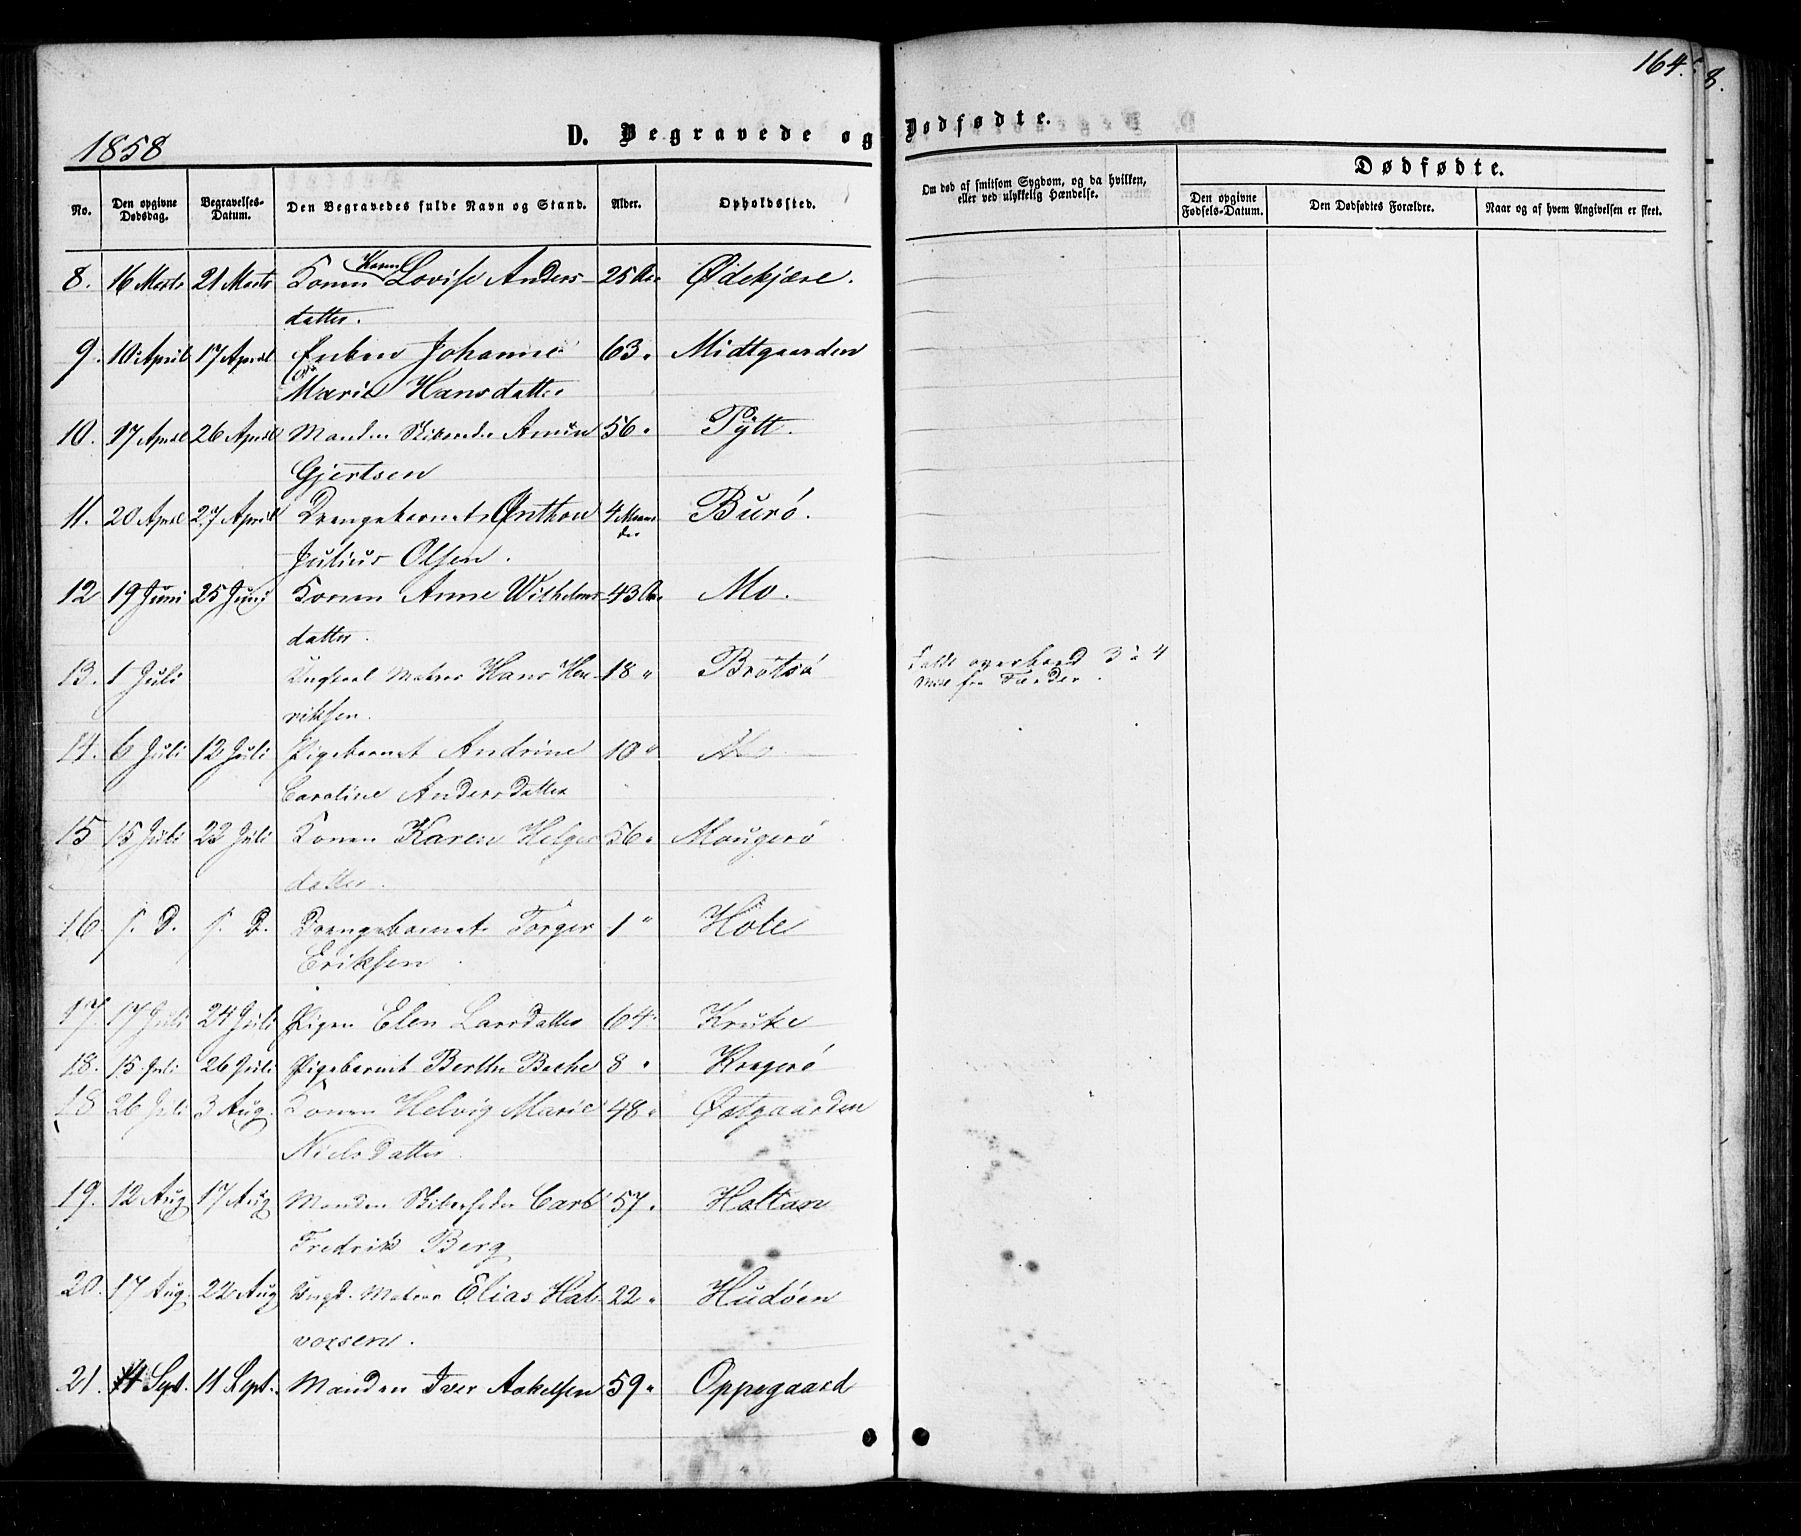 164.
8.
1858
D. Begravede og Dødfødte.
No. Den opgivne Dødsdag. Begravelses-Datum. Den Begravedes fulde Navn og Stand. Alder. Opholdssted.
Om død af smitsom Sygdom, og da hvilken, eller ved ulykkelig Hændelse.
Dødfødte.
Den opgivne Fødsels-Datum. Den Dødfødtes Forældre. Naar og af hvem Angivelsen er skeet.
8. 16 Marts 21 Marts Konen Karen Lovise Anders- 25 Aar Ødekjære.
datter.
9. 10 April 17 April Enken Johanne 63 " Midtgaarden
Marie Hansdatter
10. 17 April 26 April Manden Amun 56 " Pytt.
Gjertsen
11. 20 April 27 April Drengebarnet Anthon 4 Maaneder Burø.
Julius Olsen.
12 19 Juni 25 Juni Konen Anne Wilhelms- 43 Aar Mo.
datter.
13. 1 Juli Ungkarl Matros Hans Hen- 18 " Brøtsø
riksen.
Faldt overbord 3 à 4
Mile fra Færder.
14. 6 Juli 12 Juli Pigebarnet Andrine 10 " Mo
Caroline Andersdatter
15 15 Juli 22 Juli Konen Karen Helges- 56 " Mougerø
datter.
16. s. D. s. D. Drengebarnet Torger 1 " Hole
Eriksen.
17. 17 Juli 24 Juli Pigen Elen Larsdatter 64 " Kruke
18. 15 Juli 26 Juli Pigebarnet Berthe Bache 8 " Kragerø
18 26 Juli 3 Aug. Konen Helvig Marie 48 " Østgaarden
Nielsdatter.
19. 12 Aug 17 Aug Manden Carl 57 " Holtan
Fredrik Berg
20. 17 Aug. 22 Aug Ungk. Matros Elias Hal- 22 " Hudøen
vorsen.
21. 4 Sept. 11 Sept. Manden Iver Askelsen 59 " Oppegaard